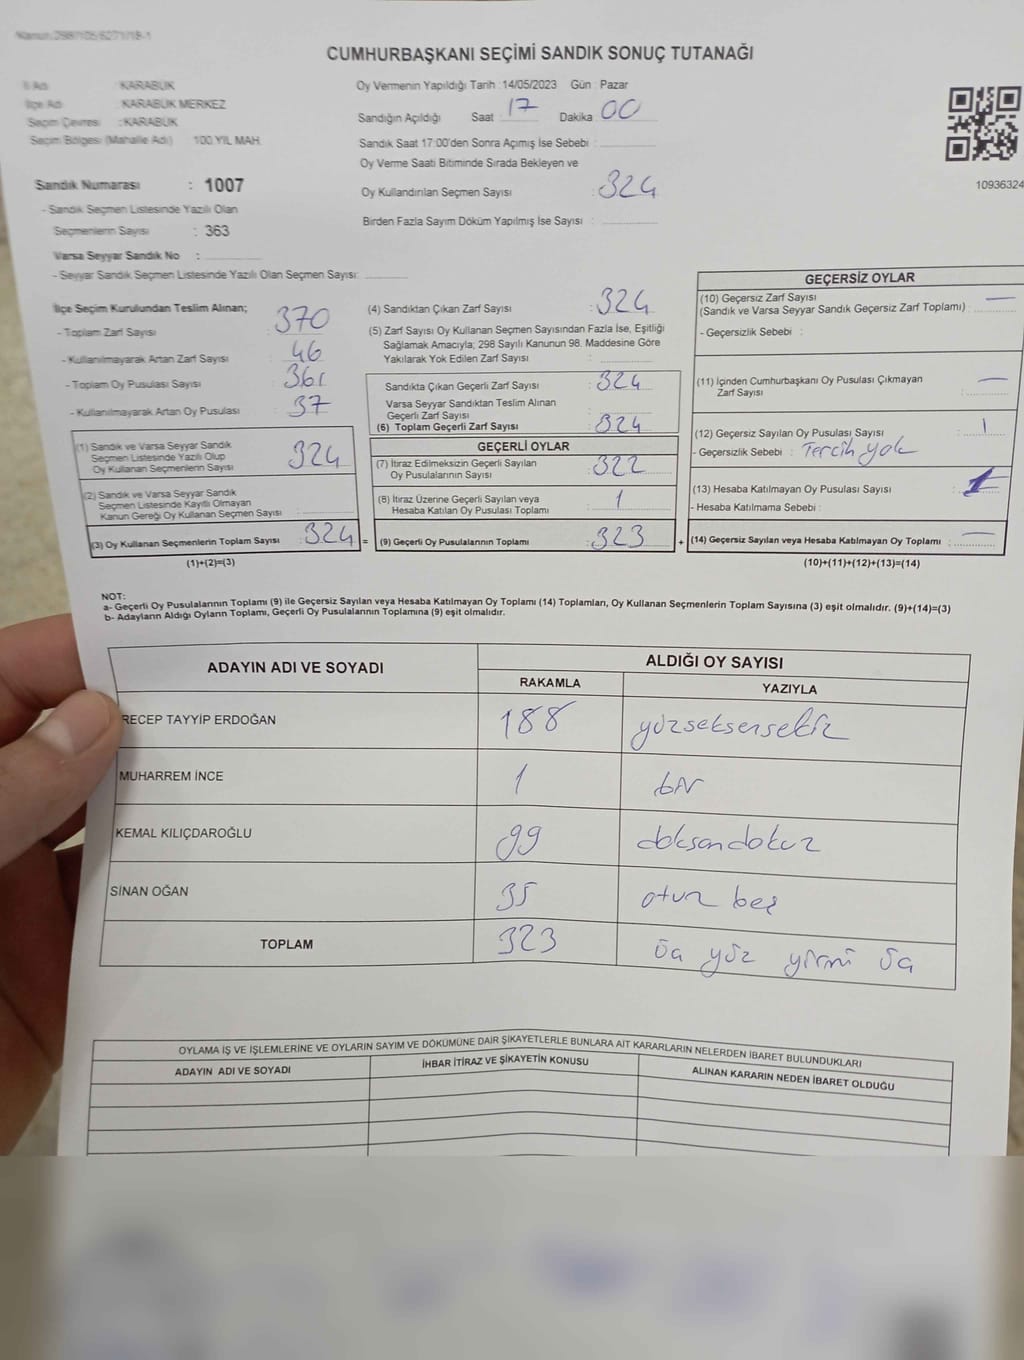 CUMHURBAŞKANI SEÇİMİ SANDIK SONUÇ TUTANAĞI
İl Adı : KARABÜK
İlçe Adı : KARABÜK MERKEZ
Seçim Çevresi : KARABÜK
Seçim Bölgesi (Mahalle Adı) 100 YIL MAH.
Sandık Numarası : 1007
- Sandık Seçmen Listesinde Yazılı Olan
Seçmenlerin Sayısı : 363
Varsa Seyyar Sandık No :
- Seyyar Sandık Seçmen Listesinde Yazılı Olan Seçmen Sayısı:
Oy Vermenin Yapıldığı Tarih : 14/05/2023 Gün : Pazar
Sandığın Açıldığı Saat 17 Dakika 00
Sandık Saat 17:00'den Sonra Açımış İse Sebebi :
Oy Verme Saati Bitiminde Sırada Bekleyen ve
Oy Kullandırılan Seçmen Sayısı : 324
Birden Fazla Sayım Döküm Yapılmış İse Sayısı :
10936324
İlçe Seçim Kurulundan Teslim Alınan;
- Toplam Zarf Sayısı : 370
- Kullanılmayarak Artan Zarf Sayısı : 46
- Toplam Oy Pusulası Sayısı : 361
- Kullanılmayarak Artan Oy Pusulası : 37
(1) Sandık ve Varsa Seyyar Sandık
Seçmen Listesinde Yazılı Olup
Oy Kullanan Seçmenlerin Sayısı : 324
(2) Sandık ve Varsa Seyyar Sandık
Seçmen Listesinde Kayıtlı Olmayan
Kanun Gereği Oy Kullanan Seçmen Sayısı :
(3) Oy Kullanan Seçmenlerin Toplam Sayısı : 324 =
(1)+(2)=(3)
(4) Sandıktan Çıkan Zarf Sayısı : 324
(5) Zarf Sayısı Oy Kullanan Seçmen Sayısından Fazla İse, Eşitliği
Sağlamak Amacıyla; 298 Sayılı Kanunun 98. Maddesine Göre
Yakılarak Yok Edilen Zarf Sayısı :
Sandıkta Çıkan Geçerli Zarf Sayısı : 324
Varsa Seyyar Sandıktan Teslim Alınan
Geçerli Zarf Sayısı :
(6) Toplam Geçerli Zarf Sayısı : 324
GEÇERLİ OYLAR
(7) İtiraz Edilmeksizin Geçerli Sayılan
Oy Pusulalarının Sayısı : 322
(8) İtiraz Üzerine Geçerli Sayılan veya
Hesaba Katılan Oy Pusulası Toplamı : 1
(9) Geçerli Oy Pusulalarının Toplamı : 323 +
GEÇERSİZ OYLAR
(10) Geçersiz Zarf Sayısı
(Sandık ve Varsa Seyyar Sandık Geçersiz Zarf Toplamı) : —
- Geçersizlik Sebebi :
(11) İçinden Cumhurbaşkanı Oy Pusulası Çıkmayan
Zarf Sayısı : —
(12) Geçersiz Sayılan Oy Pusulası Sayısı : 1
- Geçersizlik Sebebi : Tercih yok
(13) Hesaba Katılmayan Oy Pusulası Sayısı :
- Hesaba Katılmama Sebebi :
(14) Geçersiz Sayılan veya Hesaba Katılmayan Oy Toplamı : —
(10)+(11)+(12)+(13)=(14)
NOT:
a- Geçerli Oy Pusulalarının Toplamı (9) ile Geçersiz Sayılan veya Hesaba Katılmayan Oy Toplamı (14) Toplamları, Oy Kullanan Seçmenlerin Toplam Sayısına (3) eşit olmalıdır. (9)+(14)=(3)
b- Adayların Aldığı Oyların Toplamı, Geçerli Oy Pusulalarının Toplamına (9) eşit olmalıdır.
ADAYIN ADI VE SOYADI ALDIĞI OY SAYISI
RAKAMLA YAZIYLA
RECEP TAYYİP ERDOĞAN 188 yüzseksensekiz
MUHARREM İNCE 1 bir
KEMAL KILIÇDAROĞLU 99 doksandokuz
SİNAN OĞAN 35 otuz beş
TOPLAM 323 üç yüz yirmi üç
OYLAMA İŞ VE İŞLEMLERİNE VE OYLARIN SAYIM VE DÖKÜMÜNE DAİR ŞİKAYETLERLE BUNLARA AİT KARARLARIN NELERDEN İBARET BULUNDUKLARI
ADAYIN ADI VE SOYADI İHBAR İTİRAZ VE ŞİKAYETİN KONUSU ALINAN KARARIN NEDEN İBARET OLDUĞU